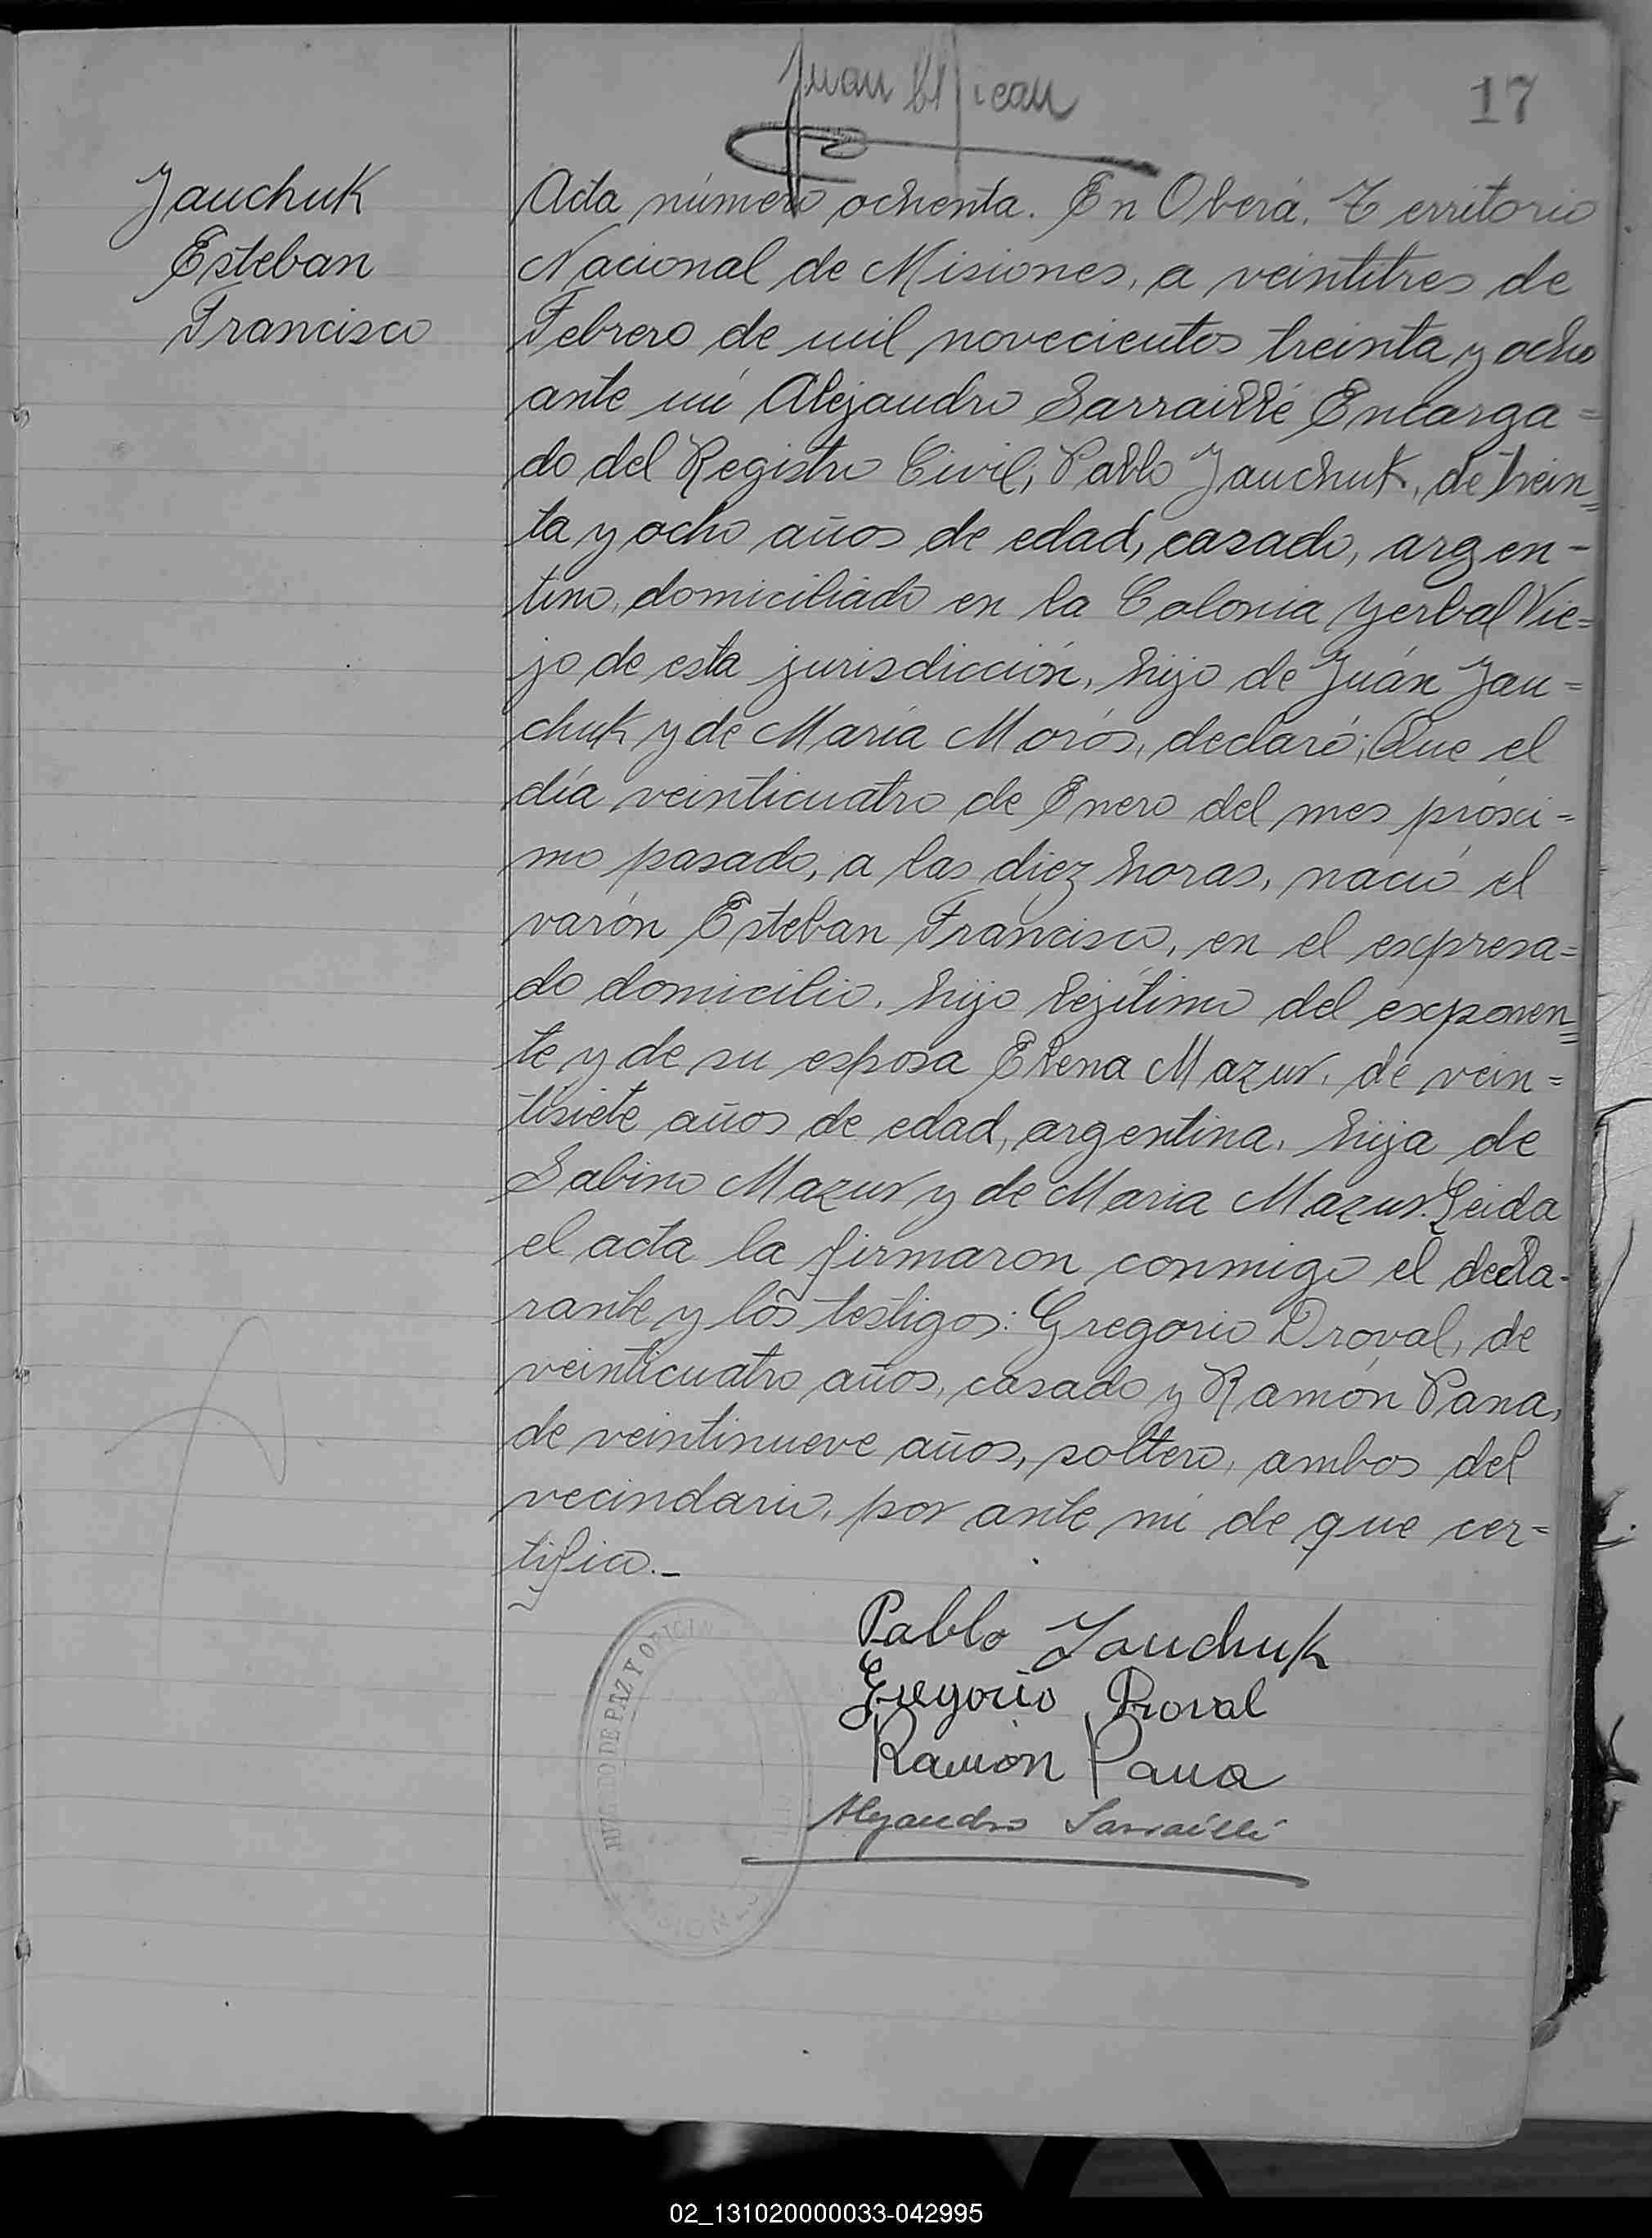 17
Jauchuk
Esteban
Francisco
Acta número ochenta. En Oberá. Territorio
Nacional de Misiones, a veintitres de
Febrero de mil novecientos treinta y ocho
ante mi Alejandro Sarraillé Encarga=
do del Registro Civil; Pablo Jauchuk, de trein=
ta y ocho años de edad, casado, argen-
tino, domiciliado en la Colonia Yerbal Vie=
jo de esta jurisdicción, hijo de Juán Jau=
chuk y de María Morós, declaró; Que el
día veinticuatro de Enero del mes próxi=
mo pasado, a las diez horas, nació el
varón Esteban Francisco, en el expresa=
do domicilio, hijo lejítimo del exponen=
te y de su esposa Elena Mazur, de vein=
tisiete años de edad, argentina, hija de
Sabino Mazur y de Maria Mazur. Leida
el acta la firmaron conmigo el decla-
rante y los testigos: Gregorio Droval, de
veinticuatro años, casado y Ramón Pana,
de veintinueve años, soltero, ambos del
vecindario, por ante mi de que cer=
tifico._
Pablo Jauchuk
Gregorio Droval
Ramón Pana
Alejandro Sarraillé
DE PAZ Y OFICIN
02_131020000033-042995